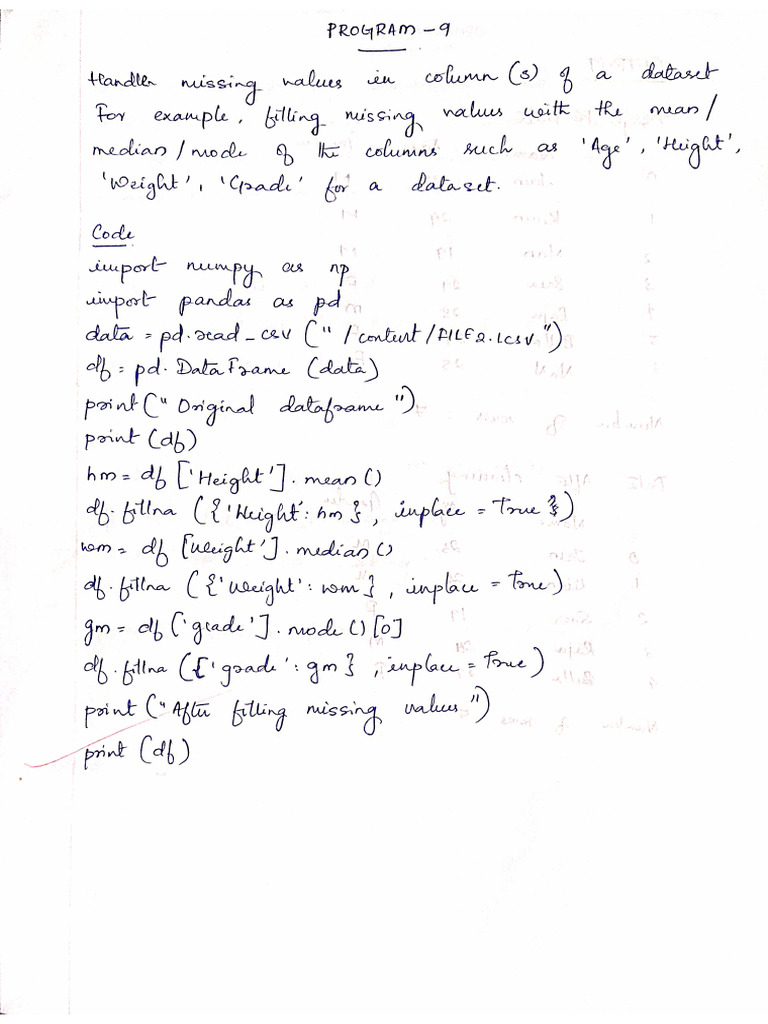 PROGRAM - 9
Handler missing values in column (s) of a dataset
For example, filling missing values with the mean /
median / mode of the columns such as 'Age', 'Height',
'Weight', 'Grade' for a dataset.
Code
import numpy as np
import pandas as pd
data = pd.read_csv ("/content/FILE2.1csv")
df = pd.DataFrame (data)
print ("Original dataframe")
print (df)
hm = df ['Height'].mean()
df.fillna ({'Height': hm }, inplace = True })
wm = df [Weight'].median()
df.fillna ({'Weight': wm}, inplace = True)
gm = df ['grade'].mode()[0]
df.fillna ({'grade': gm}, inplace = True)
print ("After filling missing values")
print (df)